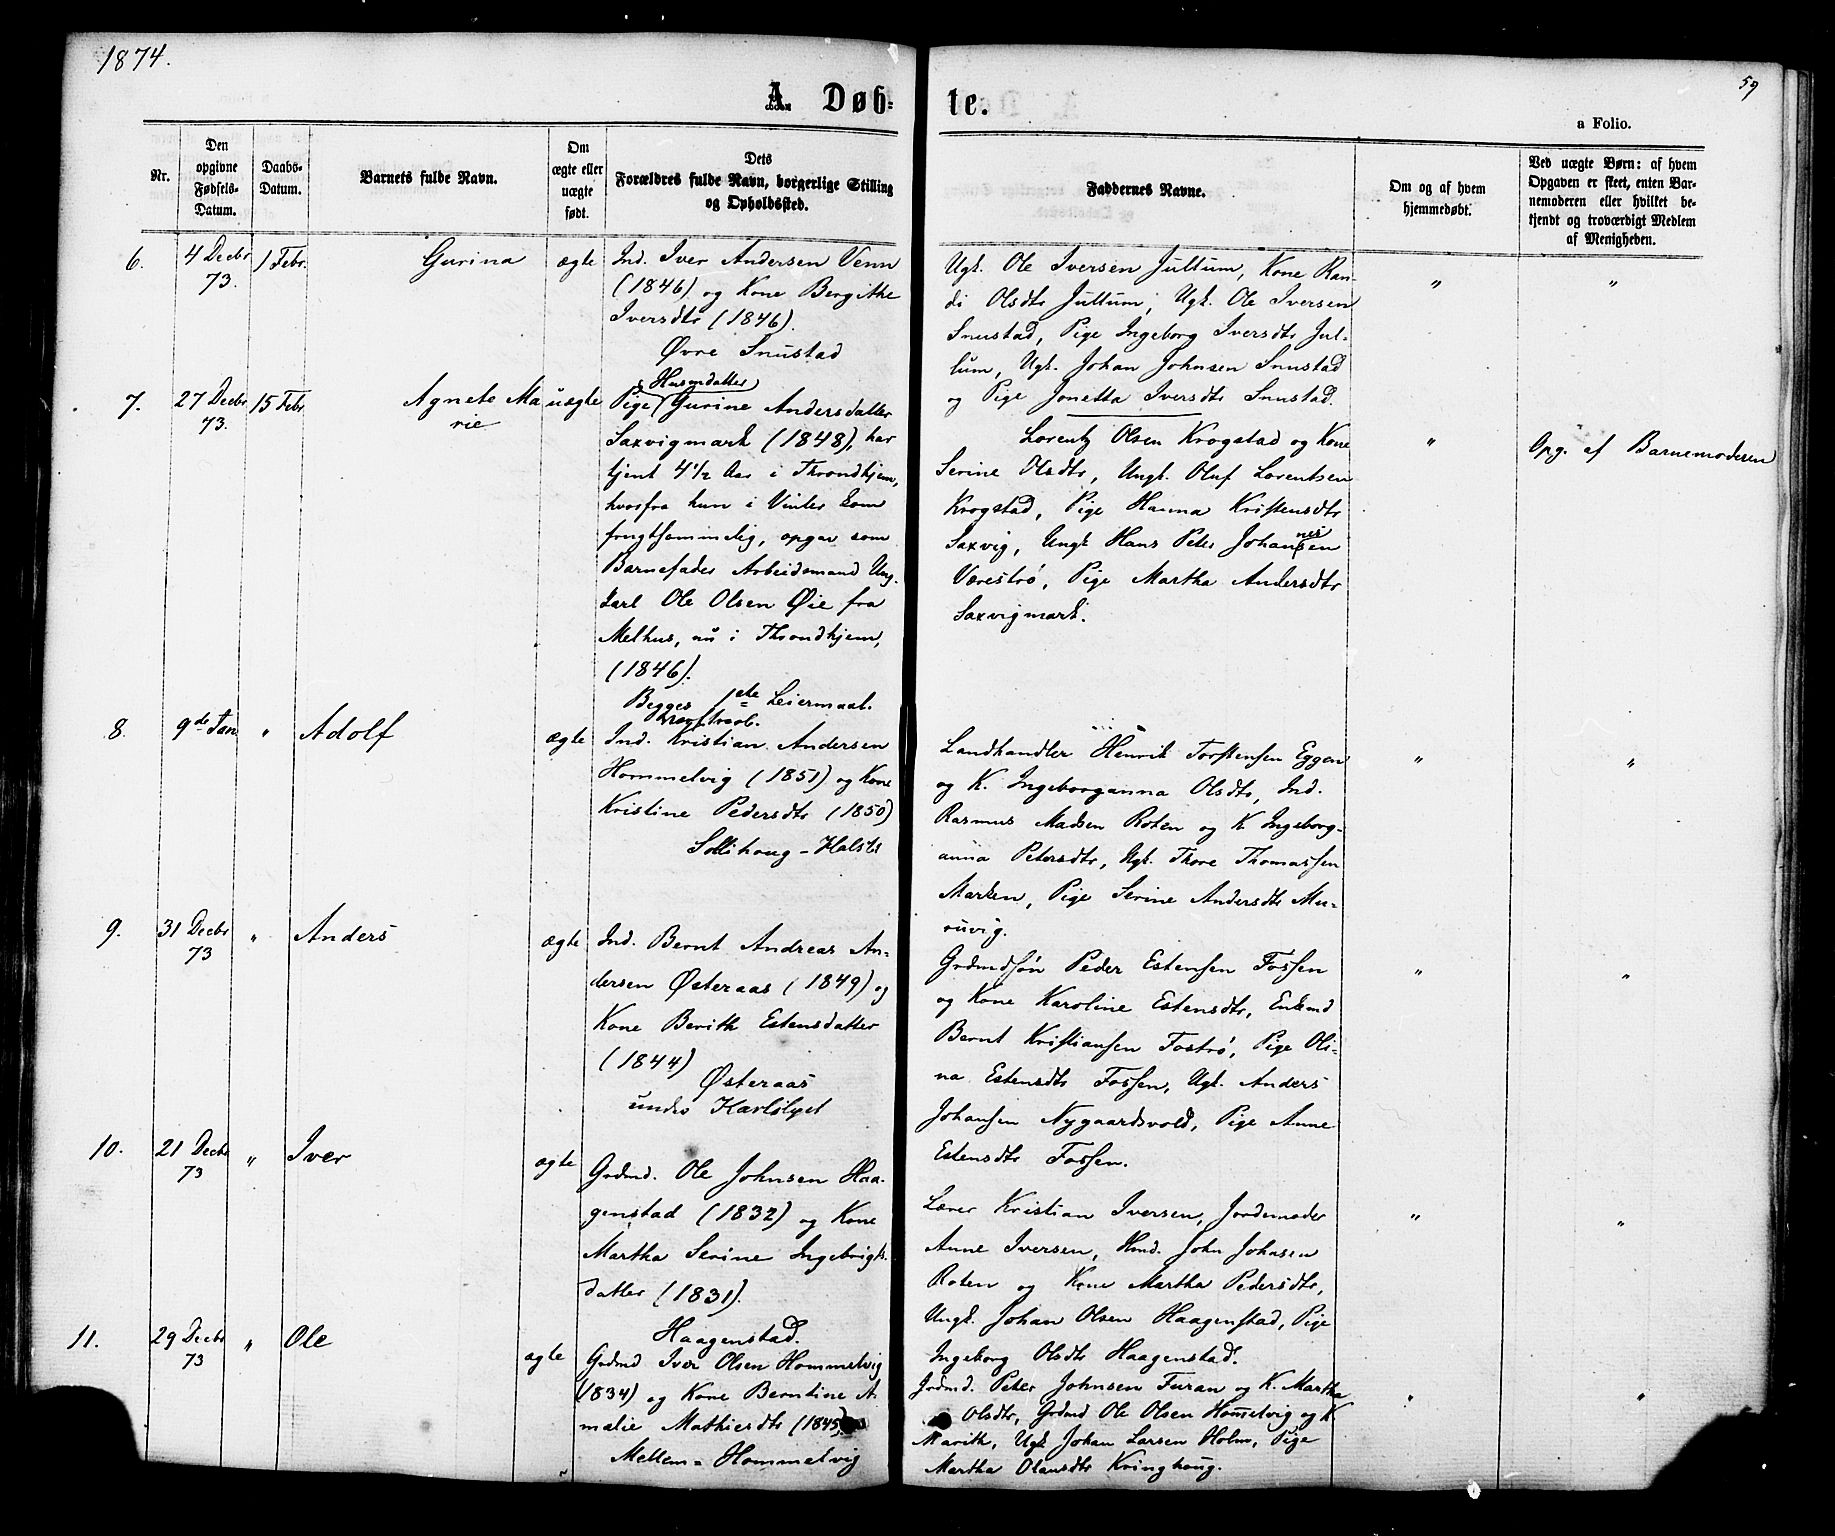 1874.
59
A. Døb-
te.
a Folio.
Nr.
Den
opgivne
Fødsels-
Datum.
Daabs-
Datum.
Barnets fulde Navn.
Om
ægte eller
uægte
født.
Dets
Forældres fulde Navn, borgerlige Stilling
og Opholdssted.
Faddernes Navne.
Om og af hvem
hjemmedøbt.
Ved uægte Børn: af hvem
Opgaven er skeet, enten Bar-
nemoderen eller hvilket be-
kjendt og troværdigt Medlem
af Menigheden.
6.
4 Decbr
73.
1 Febr.
Gurina
ægte
Ind. Iver Andersen Venn
(1846) og Kone Bergithe
Iversdtr (1846).
Øvre Snustad
Ugk. Ole Iversen Jullum, Kone Ran-
di Olsdtr Jullum, Ugk. Ole Iversen
Snustad, Pige Ingeborg Iversdtr Jul-
lum, Ugk. Johan Johnsen Snustad
og Pige Jonetta Iversdtr Snustad.
"
"
7.
27 Decbr
73.
15 Febr.
Agnete Ma
rie
uægte
Husmdatter
Pige Gurine Andersdatter
Saxvigmark (1848), har
tjent 4 1/2 Aar i Throndhjem,
hvorfra hun i Vinter kom
frugtsommelig, opgav som
Barnefader Arbeidsmand Ung-
karl Ole Olsen Øie fra
Melhus, nu i Throndhjem,
(1846).
Begges 1ste Leiermaal.
Lorentz Olsen Krogstad og Kone
Serine Olsdtr, Ungk. Oluf Lorentsen
Krogstad, Pige Hanna Kristensdtr
Saxvig, Ungk Hans Peter Johansen
nes
Værestrø, Pige Martha Andersdtr
Saxvigmark.
"
Opg. af Barnemoderen
8.
9de Jan
"
Adolf
ægte
Ind. Kristian Andersen
Hommelvig (1851) og Kone
Kristine Pedersdtr (1850)
Sollihoug - Halstr
Landhandler Henrik Torstensen Eggen
og K. Ingeborganna Olsdtr, Ind.
Rasmus Madsen Roten og K Ingeborg-
anna Petersdtr, Ugk. Thore Thomassen
Marken, Pige Serine Andersdtr Mu-
ruvig.
"
"
9.
31 Decbr
73
"
Anders
ægte
Ind. Bernt Andreas An-
dersen Østeraas (1849) og
Kone Berith Estensdatter
(1844)
Østeraas
under Karlslyst
Grdmdsøn Peder Estensen Fossen
og Kone Karoline Estensdtr, Enkmd
Bernt Kristiansen Fostrø, Pige Oli-
na Estensdtr Fossen, Ugk. Anders
Johansen Nygaardsvold, Pige Anne
Estensdtr Fossen.
"
"
10.
21 Decbr
73
"
Iver
ægte
Grdmd. Ole Johnsen Haa-
genstad (1832) og Kone
Martha Serine Ingebrigts-
datter (1831).
Haagenstad.
Lærer Kristian Iversen, Jordemoder
Anne Iversen, Hmd. John Johnsen
Roten og Kone Martha Pedersdtr,
Ungk. Johan Olsen Haagenstad, Pige
Ingeborg Olsdtr Haagenstad.
"
"
11.
29 Decbr
73
"
Ole
ægte
Grdmd Iver Olsen Hommelvig
(1834) og Kone Berntine A-
malie Mathisdtr (1845)
Mellem-Hommelvig
Grdmd. Peter Johnsen Furan og K. Martha
Olsdtr, Grdmd Ole Olsen Hommelvig og K
Marith, Ugk Johan Larsen Holm, Pige
Martha Olausdtr Kringhoug.
"
"